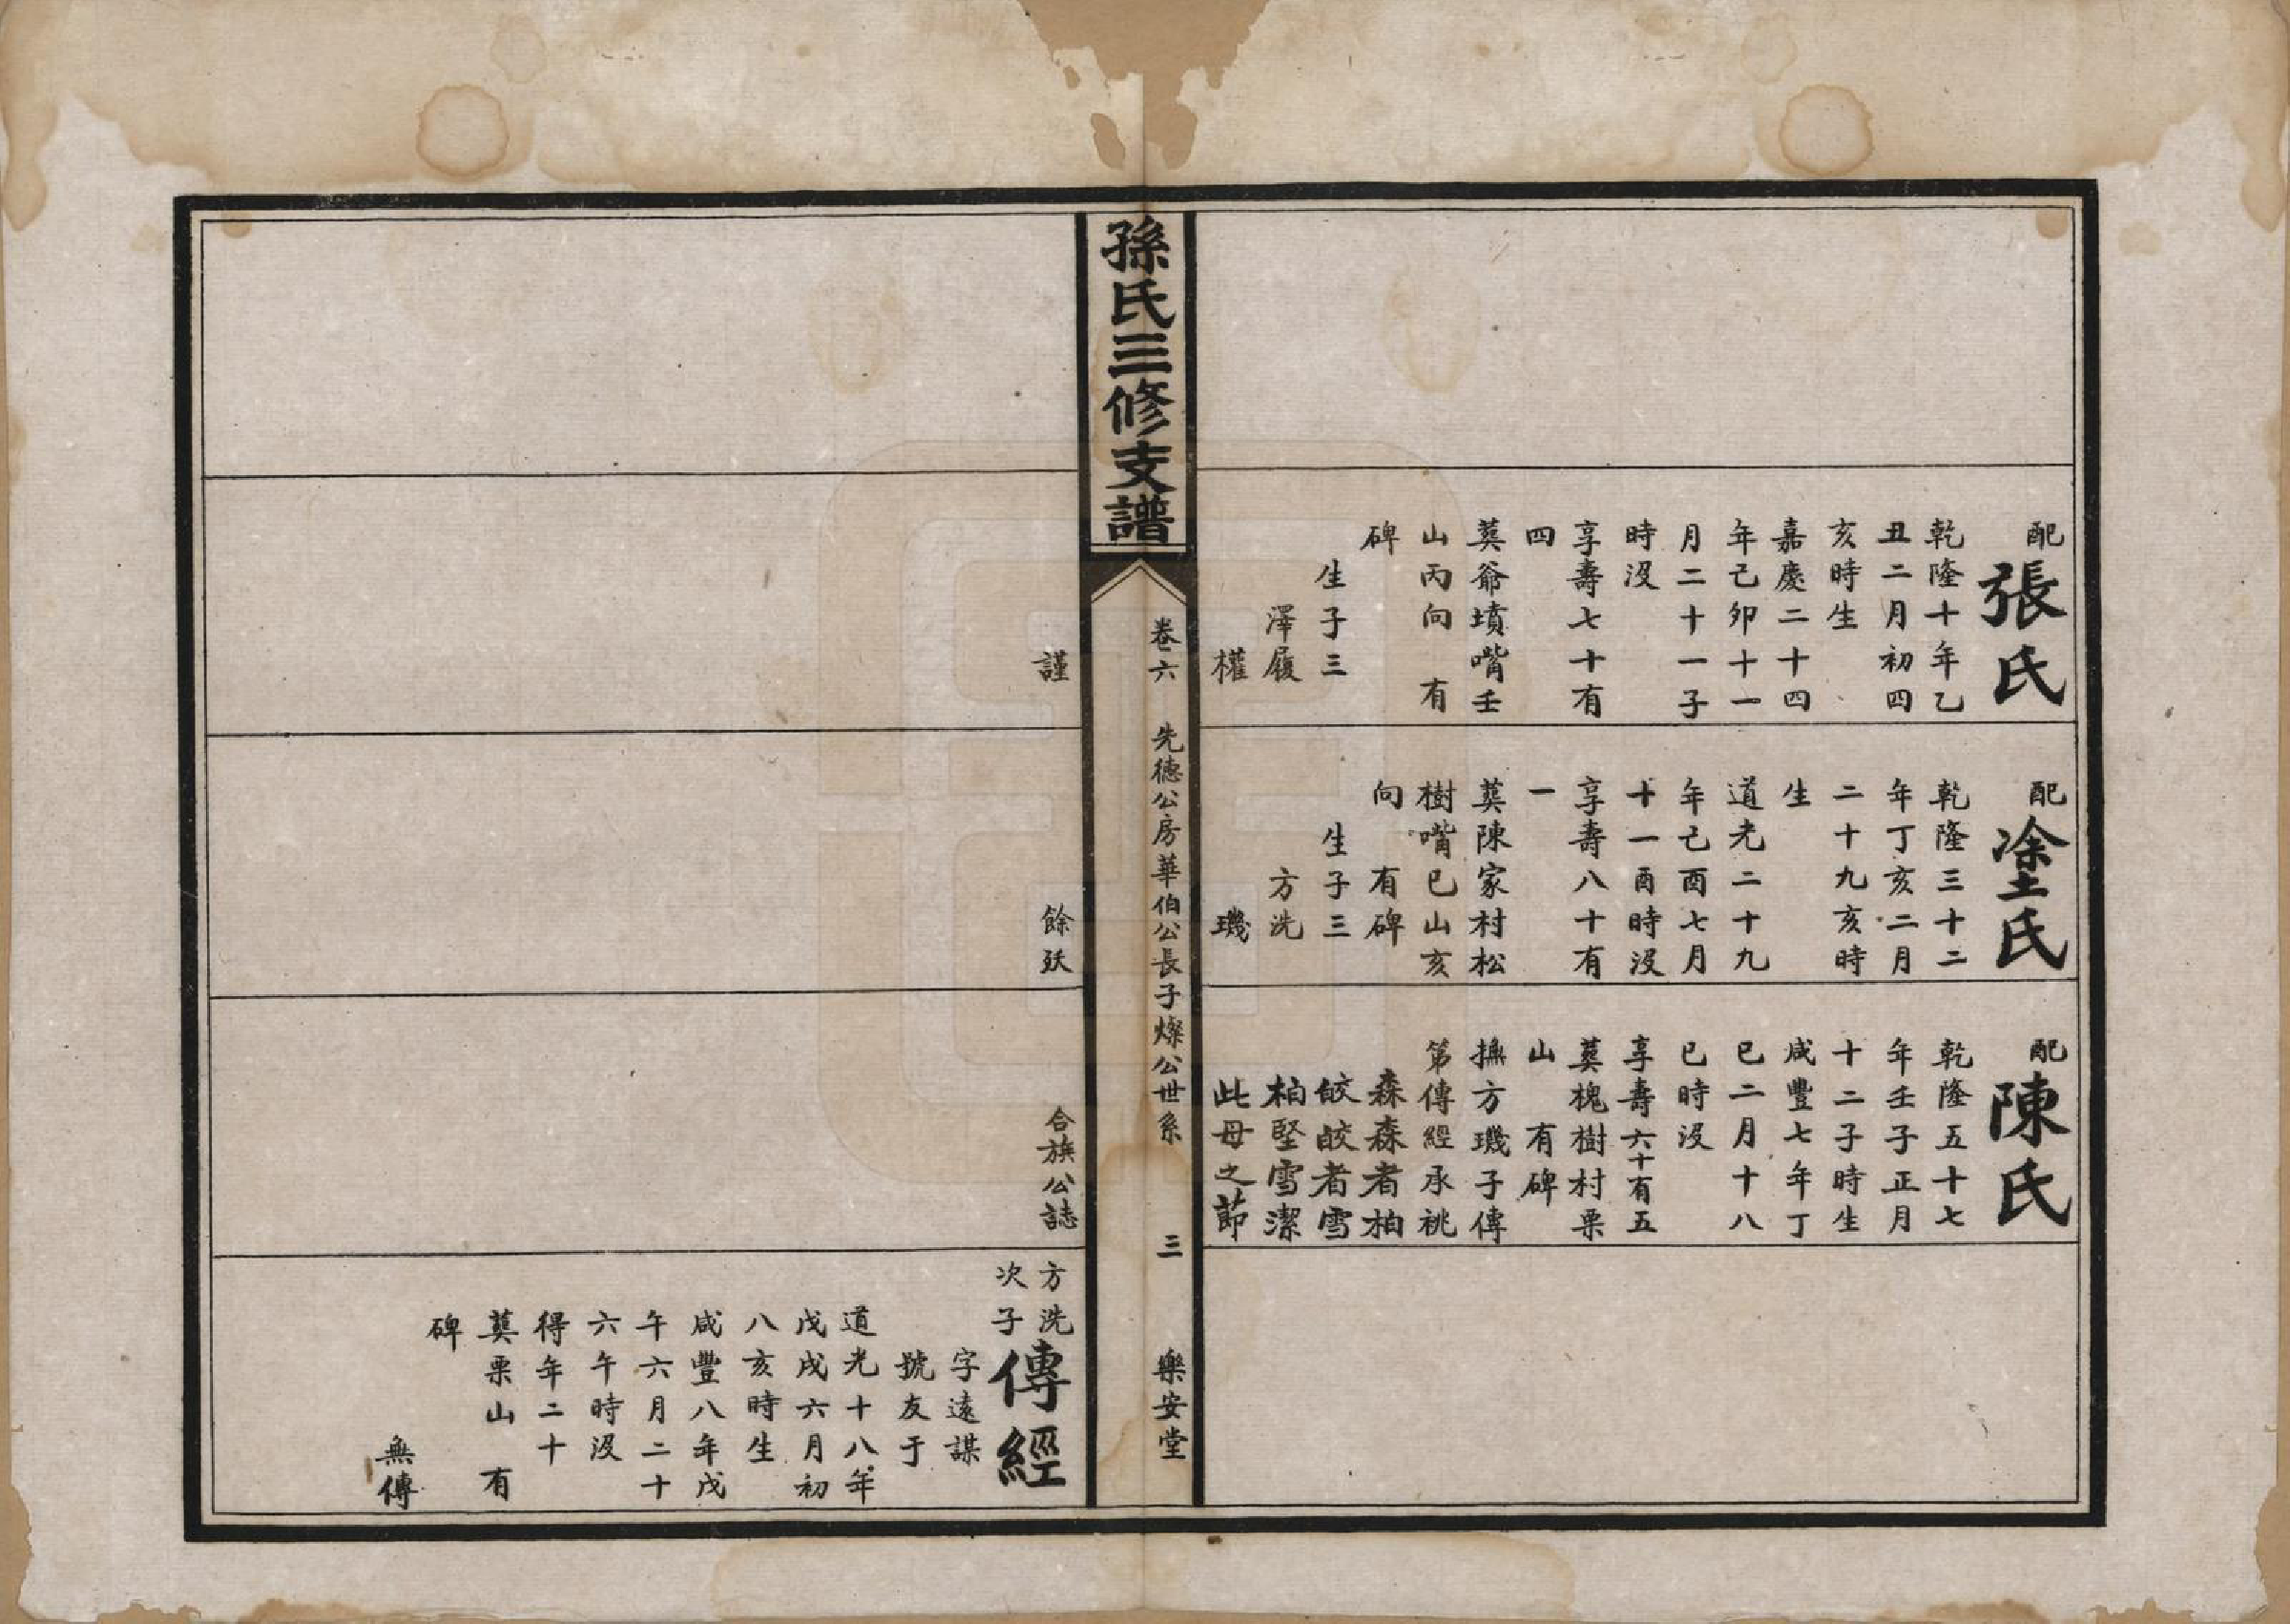 配
張氏
乾隆十年乙
丑二月初四
亥時生
嘉慶二十四
年己卯十一
月二十一子
時沒
享壽七十有
四
葬爺墳嘴壬
山丙向 有
碑
生子三
澤履
權
謹
配
塗氏
乾隆三十二
年丁亥二月
二十九亥時
生
道光二十九
年己酉七月
十一酉時沒
享壽八十有
一
葬陳家村松
樹嘴巳山亥
向 有碑
生子三
方洗
璣
餘殀
配
陳氏
乾隆五十七
年壬子正月
十二子時生
咸豐七年丁
巳二月十八
巳時沒
享壽六十有五
葬槐樹村栗
山 有碑
撫方璣子傳
第傳經承祧
森森者柏
皎皎者雪
柏堅雪潔
此母之節
合族公誌
孫氏三修支譜
卷六 先德公房華伯公長子燦公世系 三 樂安堂
方洗
次子
傳經
字遠謀
號友于
道光十八年
戊戌六月初
八亥時生
咸豐八年戊
午六月二十
六午時沒
得年二十
葬栗山 有
碑
無傳